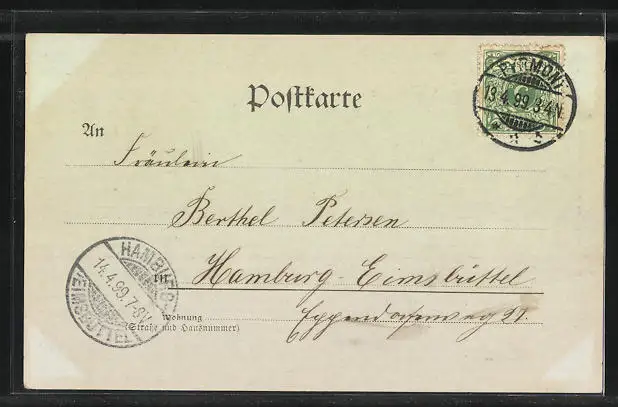 Postkarte
PYRMONT
13.4.99.3-4N.
An
Fräulein
Berthel Petersen
in Hamburg-Eimsbüttel
Wohnung
(Straße und Hausnummer)
Eppendorferweg
HAMBURG
14.4.99.7-8V.
EIMSBÜTTEL